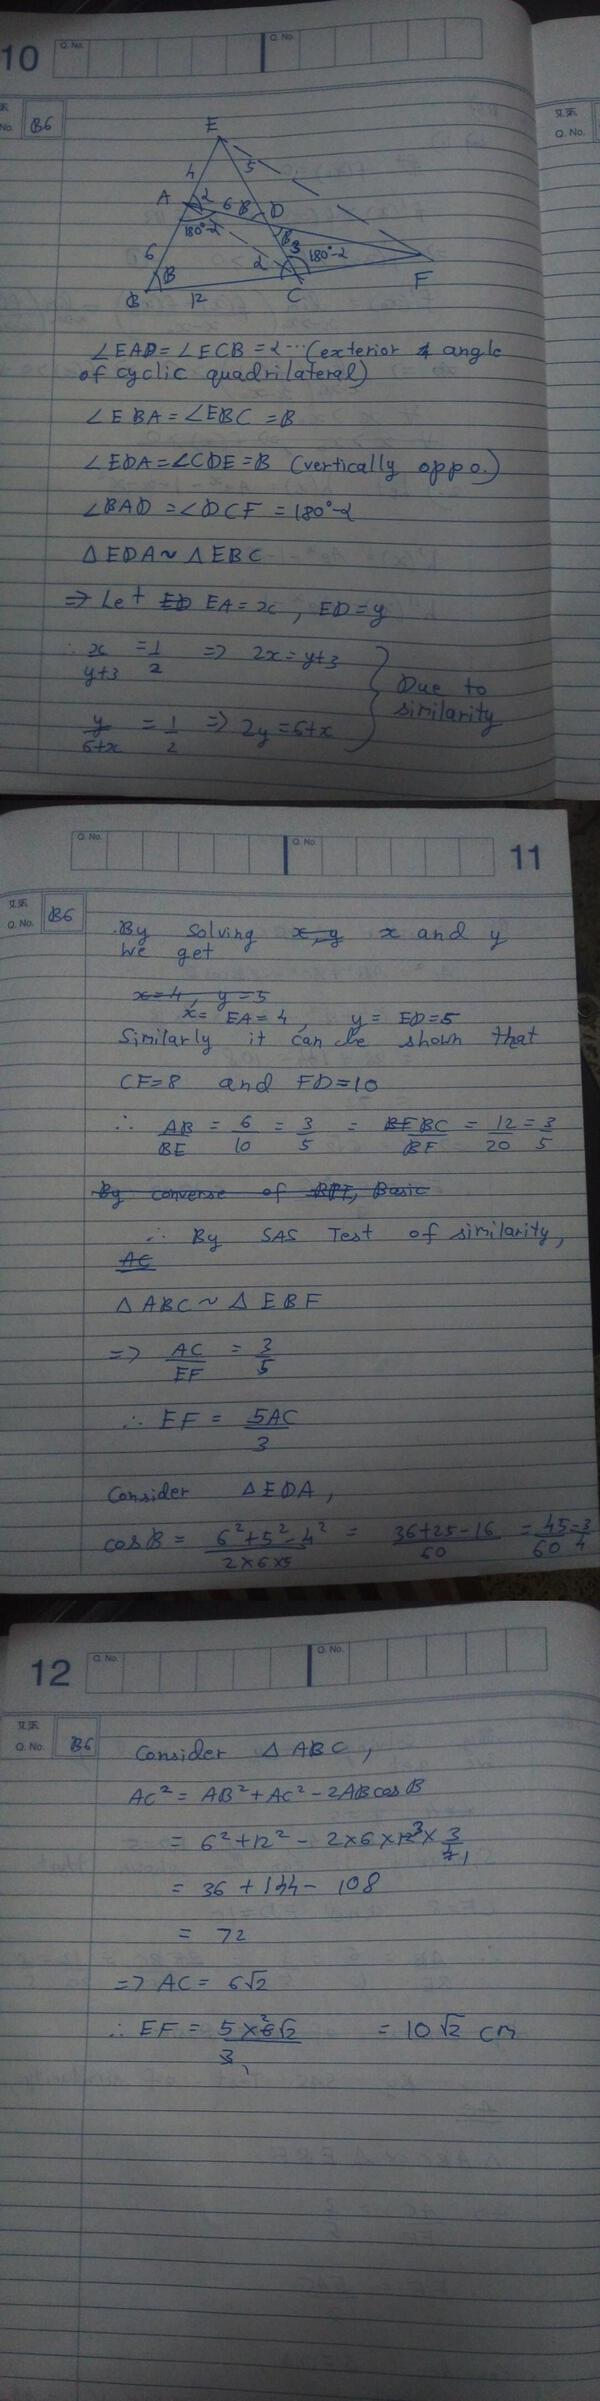 10
Q. No.
Q. No.
No.
B6
Q. No.
E
4
5
A
2
6
B
D
180°-2
B
3
180°-2
6
B
2
F
B
12
C
∠EAD = ∠ECB = 2 ... (exterior angle
of cyclic quadrilateral)
∠EBA = ∠EBC = B
∠EDA = ∠CDE = B (vertically oppo.)
∠BAD = ∠DCF = 180°-2
△EDA ~ △EBC
=> Let ED EA = x, ED = y
∴ x/y+3 = 1/2 => 2x = y+3
Due to
similarity
y/6+x = 1/2 => 2y = 6+x
Q. No.
Q. No.
11
Q. No.
B6
By solving x,y x and y
we get
x=4, y=5
x = EA = 4, y = ED = 5
Similarly it can be shown that
CF=8 and FD=10
∴ AB/BE = 6/10 = 3/5 = BE BC/BF = 12/20 = 3/5
By converse of BPT, Basic
∴ By SAS Test of similarity,
AC
△ABC ~ △EBF
=> AC/EF = 3/5
∴ EF = 5AC/3
Consider △EDA,
cosB = 6²+5²-4²/2×6×5 = 36+25-16/60 = 45/60 = 3/4
12
Q. No.
Q. No.
Q. No.
B6
Consider △ABC,
AC² = AB² + AC² - 2ABcosB
= 6² + 12² - 2×6×12 3 × 3/4 1
= 36 + 144 - 108
= 72
=> AC = 6√2
∴ EF = 5×6 2 √2/3 1 = 10√2 cm